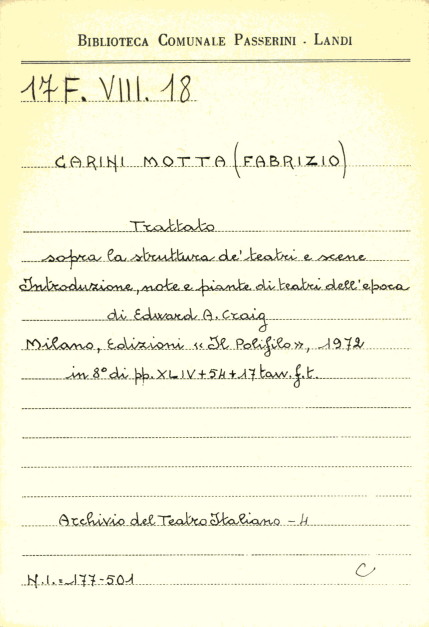 BIBLIOTECA COMUNALE PASSERINI - LANDI
17 F. VIII. 18
CARINI MOTTA (FABRIZIO)
Trattato
sopra la struttura de' teatri e scene
Introduzione, note e piante di teatri dell'epoca
di Edward A. Craig
Milano, Edizioni «Il Polifilo», 1972
in 8° di pp. XLIV+54+17 tav. f.t.
Archivio del Teatro Italiano - 4
N.I.= 177-501
C